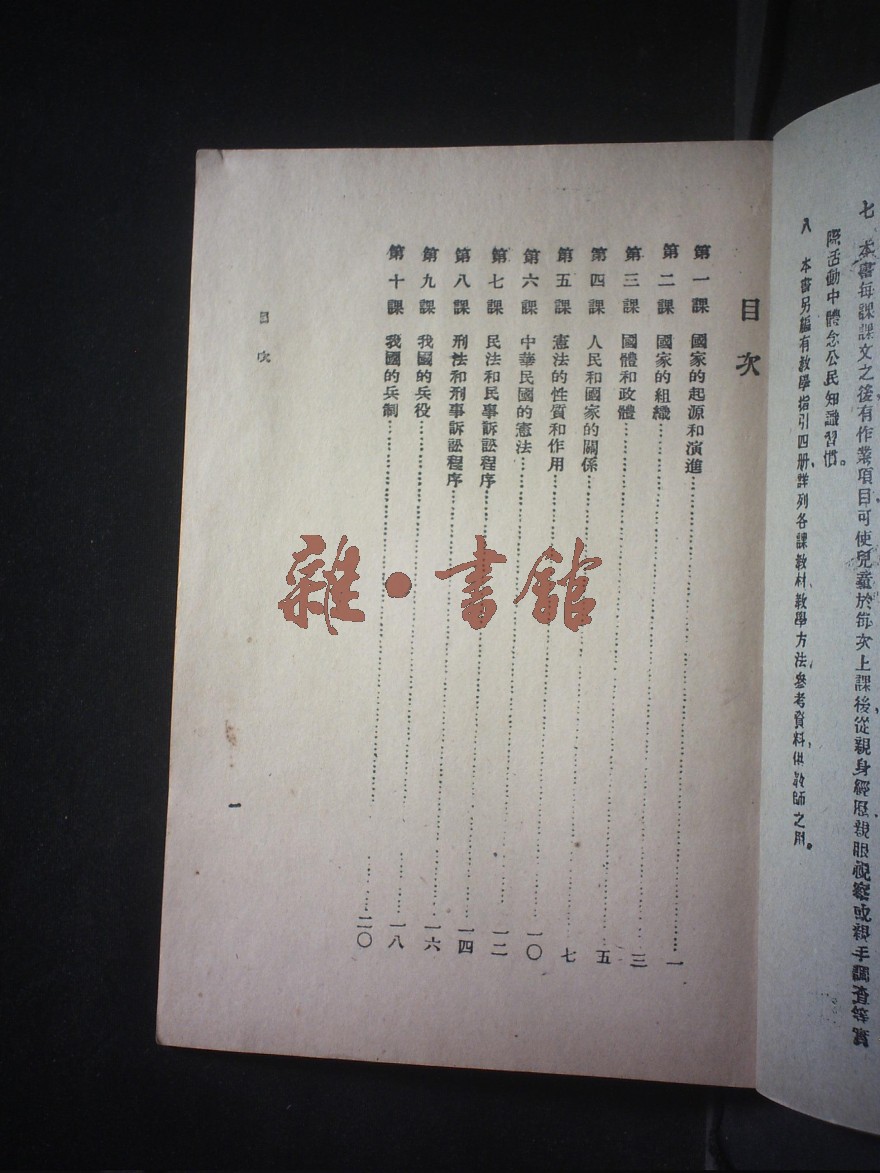 七　本書每課課文之後有作業項目可使兒童於每次上課後從親身經歷親眼視察或親手調查等實
際活動中體念公民知識習慣。
八　本書另編有教學指引四册詳列各課教材教學方法參考資料供教師之用。
目次
第一課　國家的起源和演進……一
第二課　國家的組織……三
第三課　國體和政體……五
第四課　人民和國家的關係……七
第五課　憲法的性質和作用……一〇
第六課　中華民國的憲法……一二
第七課　民法和民事訴訟程序……一四
第八課　刑法和刑事訴訟程序……一六
第九課　我國的兵役……一八
第十課　我國的兵制……二〇
目次
一
雜·書館